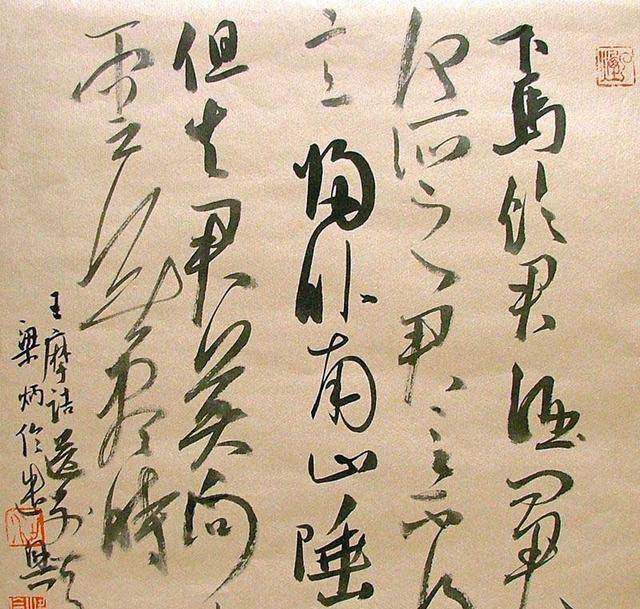 下馬飲君酒問君
何所之君言不得
意歸臥南山陲
但去君莫問
雲無盡時
王摩詰送別
梁炳伦